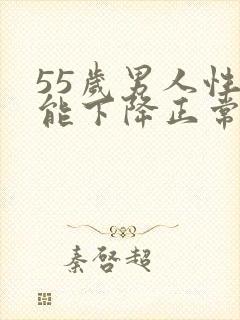 55歲男人性
能下降正常
秦啓超